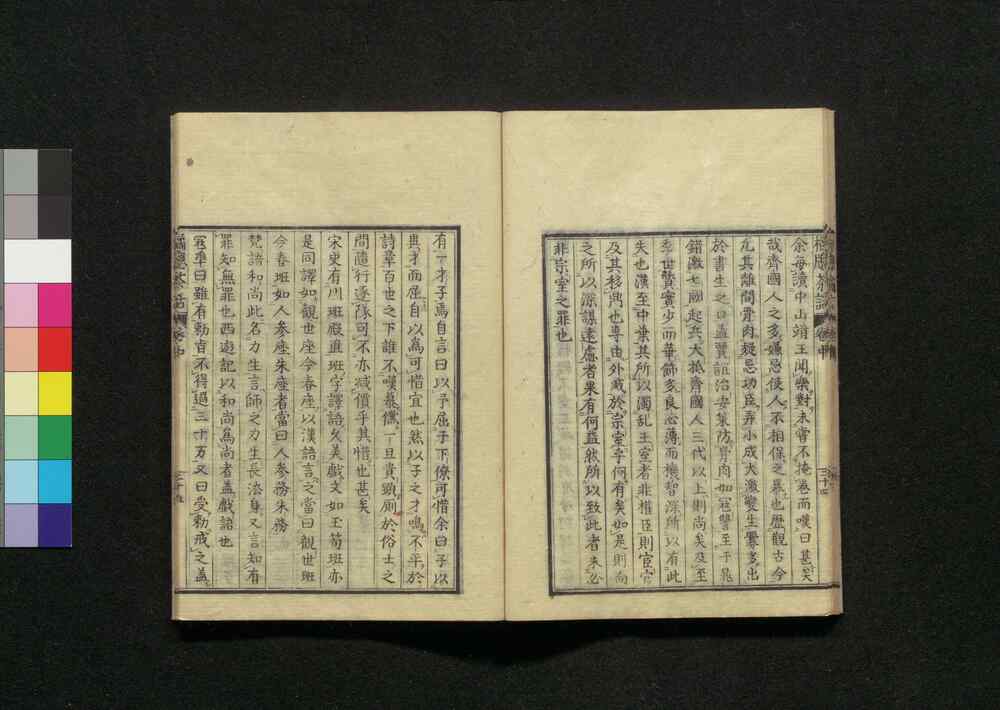 余每讀中山靖王聞樂對未嘗不掩卷而嘆曰甚矣
哉齊國人之多嫌忌使人不相保之暴也歷觀古今
尤其離間骨肉疑忌功臣弄小成大激變生釁多出
於書生之口孟賈誼治安策防骨肉如寇讐至于晁
錯激七國起兵大抵齊國人三代以上則尚矣及至
季世贅實少而華飾多良心薄而機智深所以有此
失也漢至中葉其所以濁乱王室者非權臣則宦官
及其移鼎也專由外戚於宗室乎何有矣如是則向
之所以深謀遠慮者果有何益然所以致此者未必
非宗室之罪也
三十四
有一才子焉自言曰以予屈子下僚可惜余曰子以
與才而屈自以為可惜宜也然以子之才鳴不平於
詩章百世之下誰不嘆慕儻一旦貴顕厠於俗士之
間隨行逐隊可不亦減價乎其惜也甚矣
宋史有川班殿直班字譯語久美戲文如玉筍班亦
是同譯如觀世座今春座以漢語言之當曰觀世班
今春班如人参座朱座者當曰人参務朱務
梵語和尚此名力生言師之力生長法身又言知有
罪知無罪也西遊記以和尚為尚者盖戲語也
冠準曰雖有勅皆不得過三十万又曰受勅戒之盖
茶話
卷中
三十五